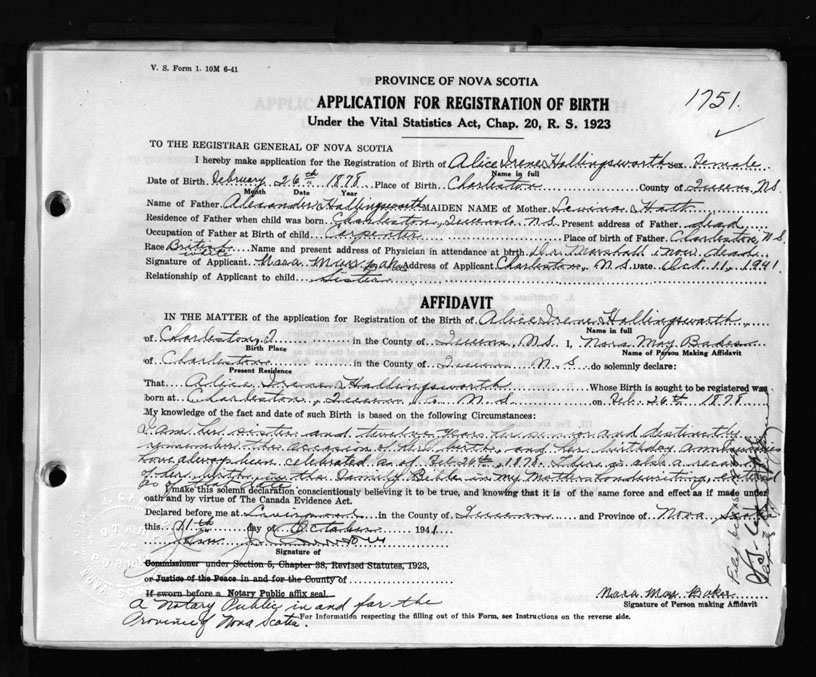 V. S. Form 1. 10M 6-41
PROVINCE OF NOVA SCOTIA
1751.
APPLICATION FOR REGISTRATION OF BIRTH
Under the Vital Statistics Act, Chap. 20, R. S. 1923
TO THE REGISTRAR GENERAL OF NOVA SCOTIA
I hereby make application for the Registration of Birth of Alice Irene Hallingsworth sex Female
Name in full
Date of Birth February 26th 1878 Place of Birth Charleston County of Queens, N.S.
Month Date Year
Name of Father Alexander Hallingsworth MAIDEN NAME of Mother Lavina
Residence of Father when child was born Charleston, Queens Co N.S. Present address of Father dead
Occupation of Father at Birth of child Carpenter Place of Birth of Father Charleston, N.S.
Race British white Name and present address of Physician in attendance at birth Dr. Marshall now dead
Signature of Applicant Nora May Baker Address of Applicant Charleston, N.S. DATE Oct. 11, 1941
Relationship of Applicant to child Sister
AFFIDAVIT
IN THE MATTER of the application for Registration of the Birth of Alice Irene Hallingsworth
Name in full
of Charleston, in the County of Queens, N.S. I, Nora May Baker
Birth Place Name of Person Making Affidavit
of Charleston in the County of Queens N.S do solemnly declare:
Present Residence
That Alice Irene Hallingsworth Whose Birth is sought to be registered was
born at Charleston, Queens Co N.S on Feb. 26th 1878
My knowledge of the fact and date of such Birth is based on the following Circumstances:
I am her sister and twelve years her senior and distinctly
remember the occasion of her birth, and her birthday anniversaries
have always been celebrated as of Feb 26th, 1878. There is also a record
of her birth in the Family Bible in my Mother's handwriting, entered
as of that date
I make this solemn declaration conscientiously believing it to be true, and knowing that it is of the same force and effect as if made under
oath and by virtue of The Canada Evidence Act.
Declared before me at Liverpool in the County of Queens and Province of Nova Scotia
this 11th day of October 1941
Signature of
Commissioner under Section 5, Chapter 38, Revised Statutes, 1923,
or Justice of the Peace in and for the County of
If sworn before a Notary Public affix seal
A Notary Public in and for the
Province of Nova Scotia.
Nora May Baker
Signature of Person making Affidavit
For Information respecting the filling out of this Form, see Instructions on the reverse side.